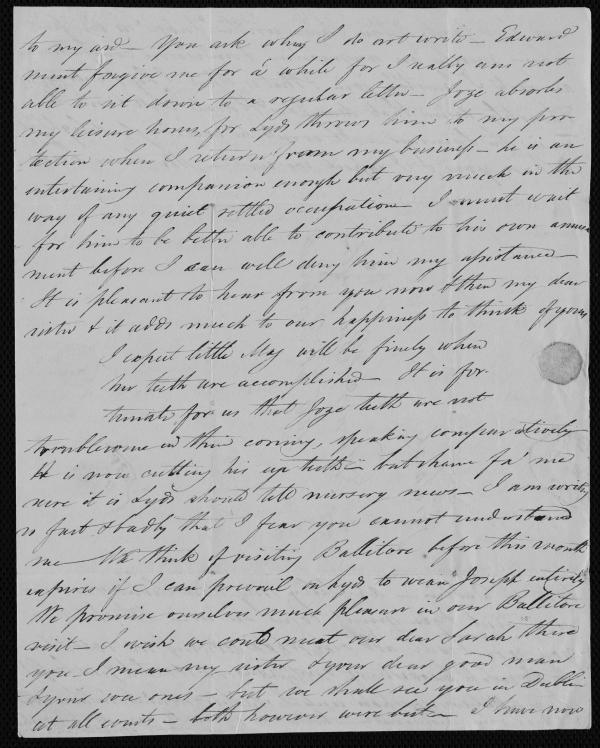 to my aid - You ask why I do not write - Edward
must forgive me for a while for I really am not
able to sit down to a regular letter - Joze absorbs
my leisure hours, for Lyd throws him to my pro
tection when I return from my business - he is an
entertaining companion enough but very much in the
way of any quiet settled occupation - I must wait
for him to be better able to contribute to his own amuse
ment before I can well deny him my assistance -
It is pleasant to hear from you now & then my dear
sister & it adds much to our happiness to think of yours
I expect little May will be finely when
her teeth are accomplished - It is for
tunate for us that Joze teeth are not
troublesome in their coming, speaking comparatively
He is now cutting his eye teeth - but shame fa' me
sure it is Lyd should tell nursery news - I am writing
so fast & badly that I fear you cannot understand
me - We think of visiting Ballitore before this month
expires if I can prevail on Lyd to wean Joseph entirely
We promise ourselves much pleasure in our Ballitore
visit - I wish we could meet our dear Sarah there
you I mean my sister & your dear good man
& your wee ones - but we shall see you in Dublin
at all events - both however were best - I have now